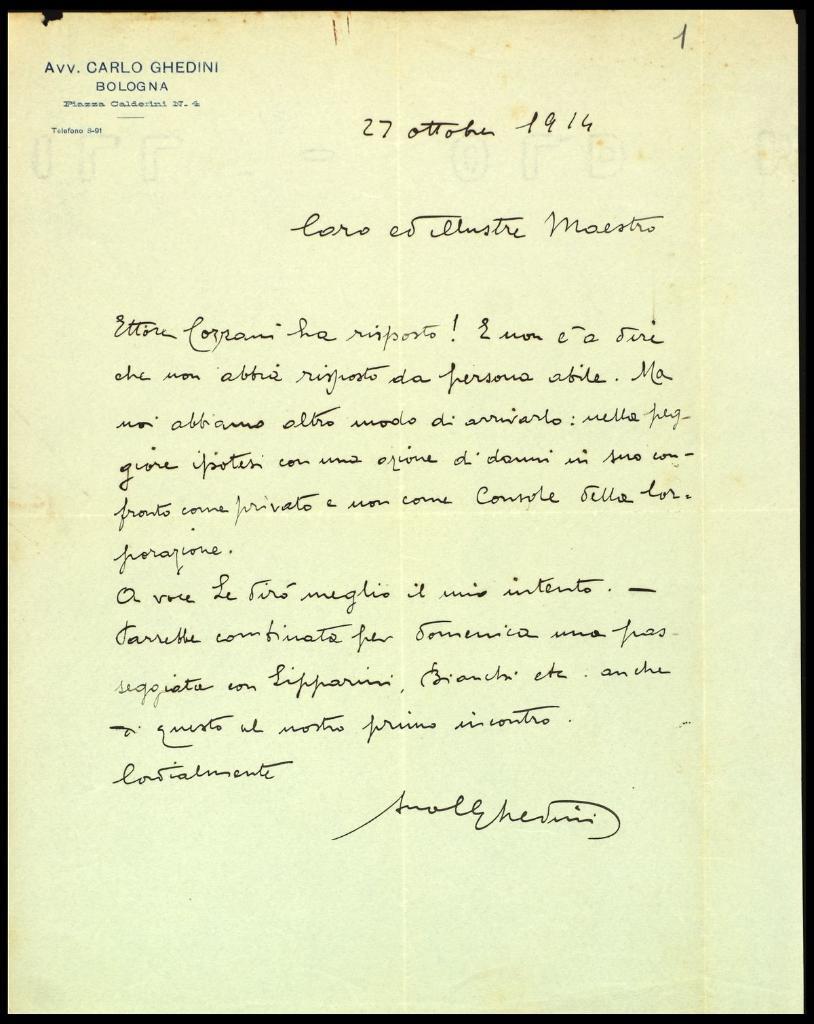 1
Avv. CARLO GHEDINI
BOLOGNA
Piazza Calderini N. 4
Telefono 8-91
27 ottobre 1914
Caro ed illustre Maestro
Ettore Cozzani ha risposto! E non c'è a dire
che non abbia risposto da persona abile. Ma
noi abbiamo altro modo di arrivarlo: nella peg-
giore ipotesi con una azione di danni in suo con-
fronto come privato e non come Console della Cor-
porazione.
A voce Le dirò meglio il mio intento. —
Sarrebbe combinata per domenica una pas-
seggiata con Lipparini, Bianchi etc. anche
di questo al nostro primo incontro.
Cordialmente
Suo CGhedini